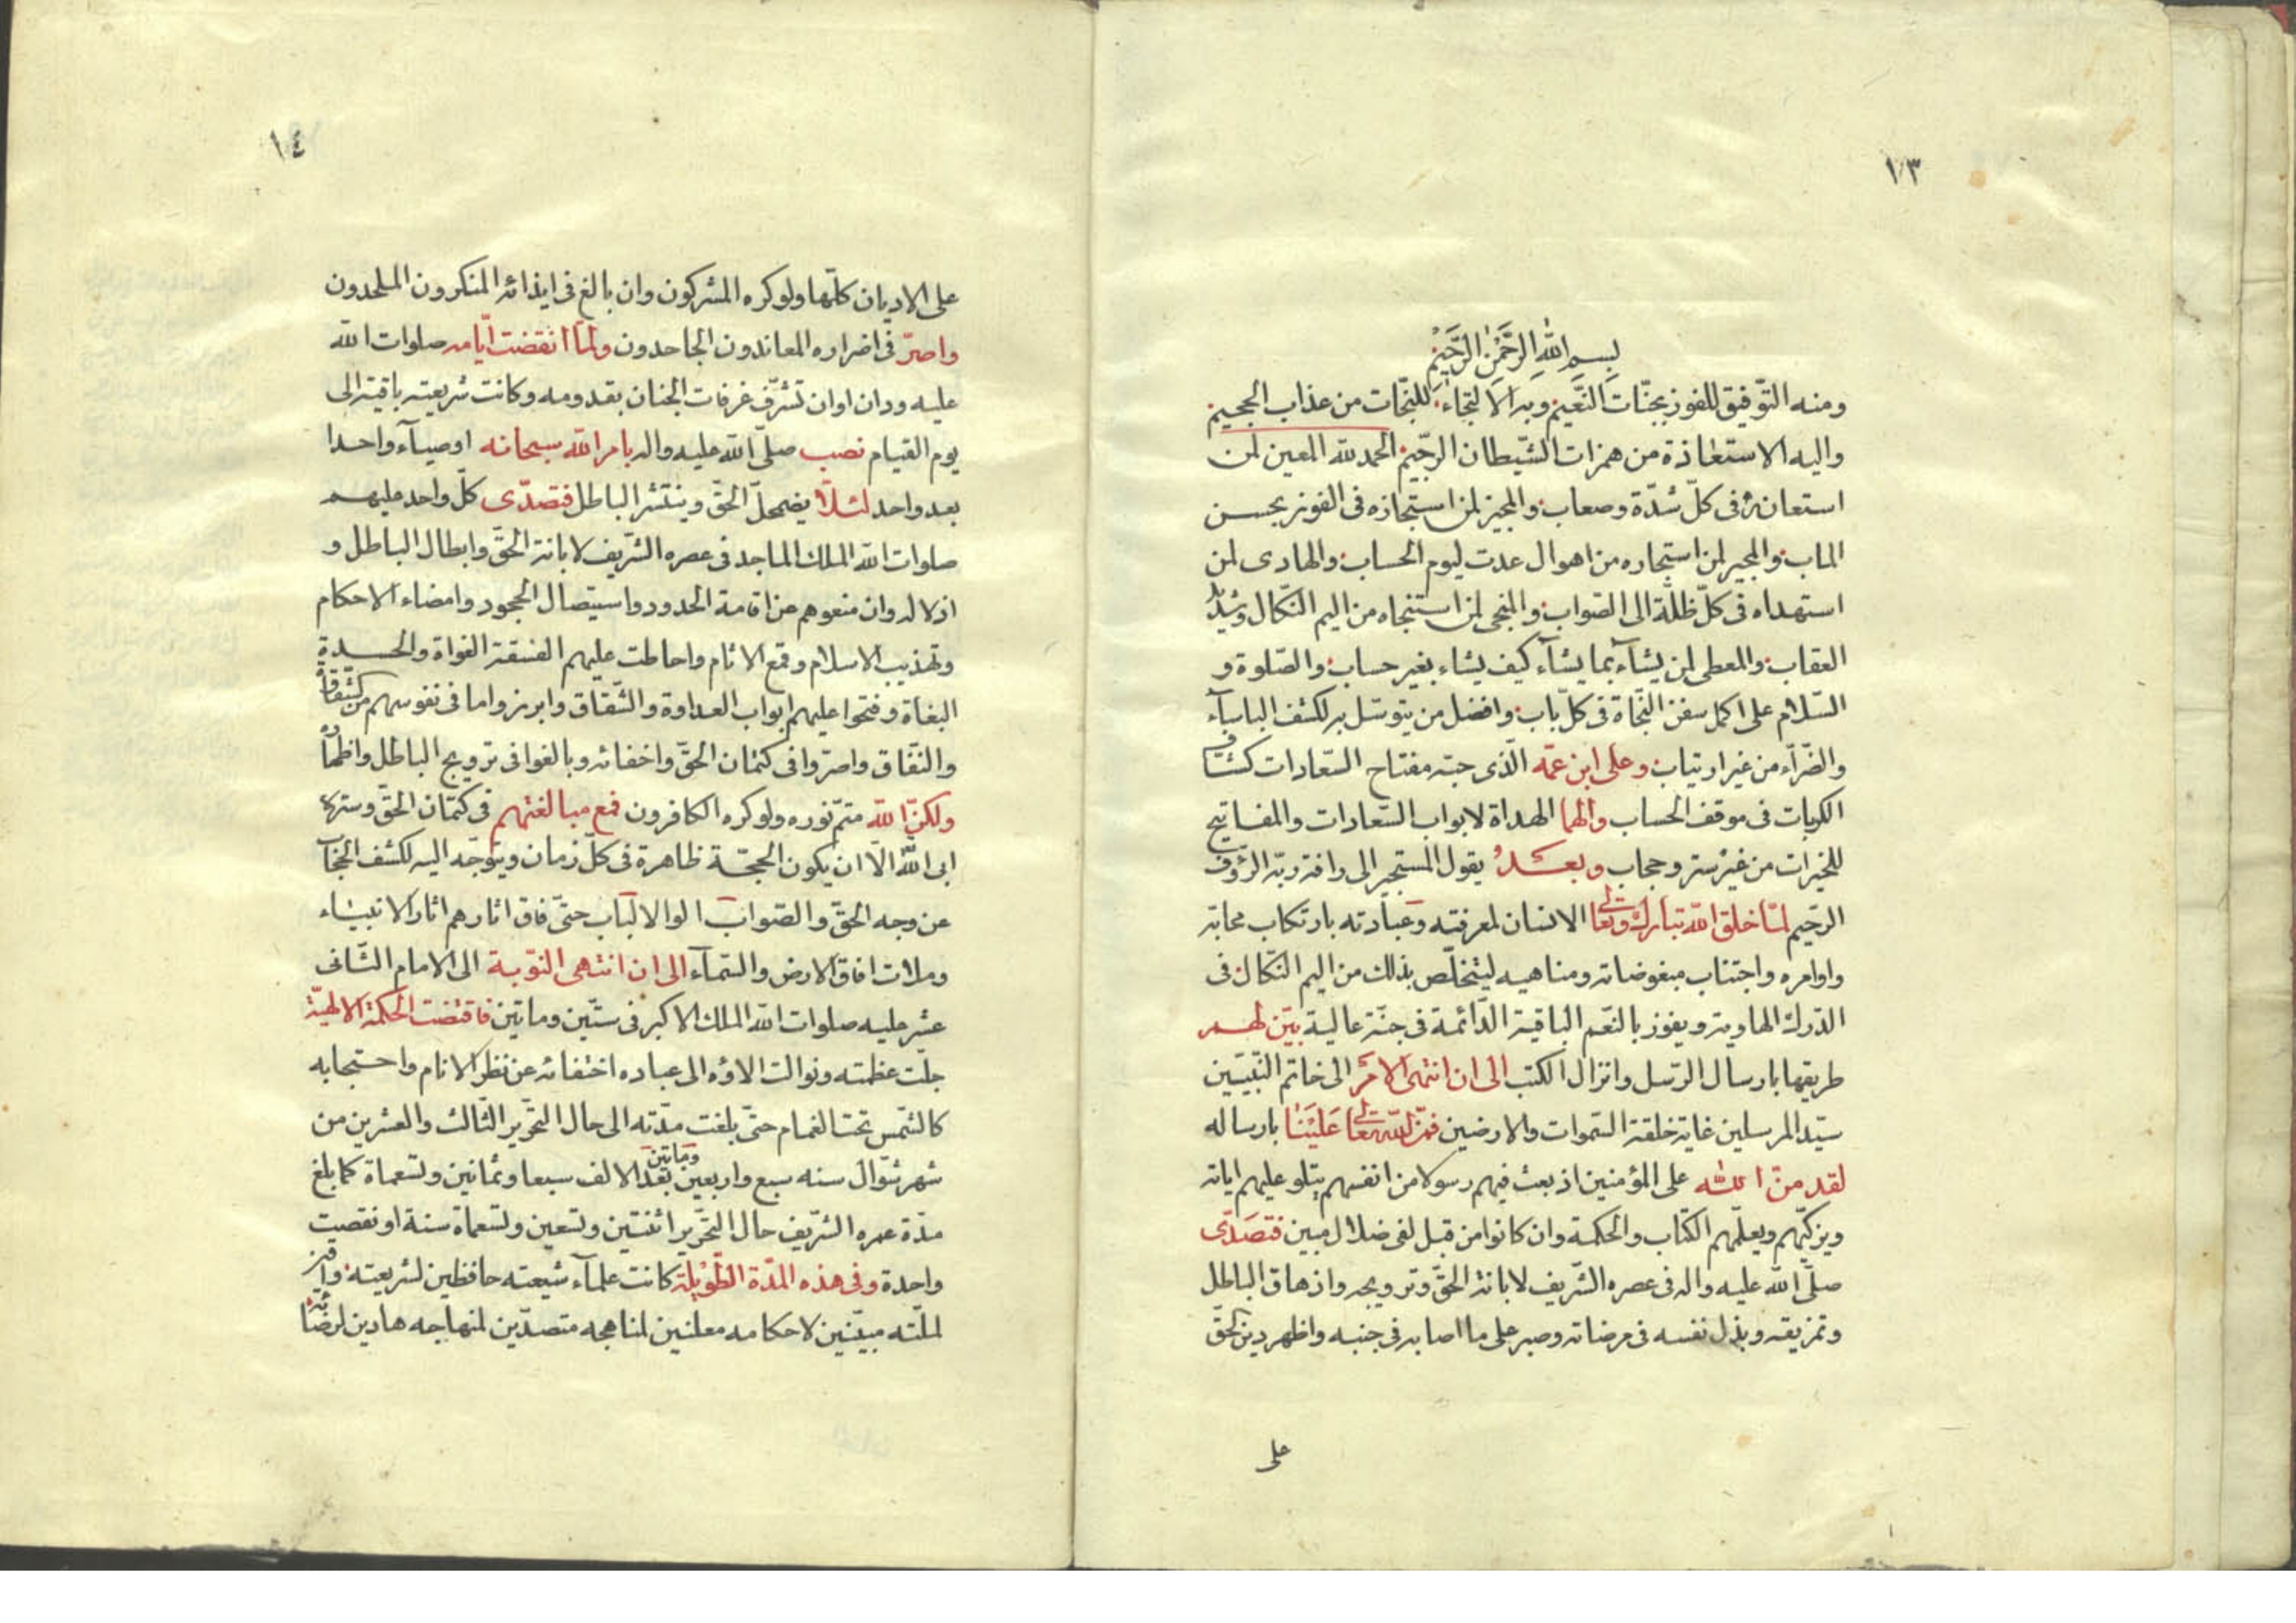 ١٣
بسم الله الرحمن الرحيم
ومنه التّوفيق للفوز بجنّات النّعيم وبه الالتجاء للنّجات من عذاب الجحيم
واليه الاستعاذة من همزات الشّيطان الرّجيم الحمد لله المعين لمن
استعانه فى كلّ شدّة وصعاب والمجيز لمن استجازه فى الفوز بحسن
الماب والمجير لمن استجاره من اهوال عدت ليوم الحساب والهادى لمن
استهداه فى كلّ ظلّة الى الصّواب والمنجى لمن استنجاه من اليم النّكال وشديد
العقاب والمعطى لمن يشآء بما يشآء كيف يشاء بغير حساب والصّلوة و
السّلام على اكمل سفن النّجاة فى كلّ باب وافضل من يتوسّل به لكشف الباسآء
والضّرّاء من غير ارتياب وعلى ابن عمّه الّذى حبّه مفتاح السّعادات كشّاف
الكربات فى موقف الحساب والهما الهداة لابواب السّعادات والمفاتيح
للخيرات من غير ستر وحجاب وبعد يقول المستجير الى رافة ربّه الرّؤف
الرّحيم لمّا خلق الله تبارك وتعالى الانسان لمعرفته وعبادته بارتكاب محابّه
واوامره واجتناب مبغوضاته ومناهيه ليتخلّص بذلك من اليم النّكال فى
الدّركة الهاوية ويفوز بالنّعم الباقية الدّائمة فى جنّة عالية بيّن لهم
طريقها بارسال الرّسل وانزال الكتب الى ان انتهى الامر الى خاتم النّبيّين
سيّد المرسلين غاية خلقة السّموات والارضين فمنّ الله تعالى علينا بارساله
لقد منّ الله على المؤمنين اذ بعث فيهم رسولا من انفسهم يتلو عليهم اياته
ويزكّيهم ويعلّمهم الكتاب والحكمة وان كانوا من قبل لفى ضلال مبين فتصدّى
صلّى الله عليه واله فى عصره الشّريف لابانة الحقّ وترويجه واذهاق الباطل
وتمزيقه وبذل نفسه فى مرضاته وصبر على ما اصابه فى جنبه واظهر دين الحقّ
على
١٤
على الاديان كلّها ولو كره المشركون وان بالغ فى ايذائه المنكرون الملحدون
واصرّ فى اضراره المعاندون الجاحدون ولمّا انقضت ايّامه صلوات الله
عليه ودان اوان تشرّف غرفات الجنان بقدومه وكانت شريعته باقية الى
يوم القيام نصب صلّى الله عليه واله بامر الله سبحانه اوصيآء واحدا
بعد واحد لئلّا يضمحلّ الحقّ وينتشر الباطل فتصدّى كلّ واحد عليهم
صلوات الله الملك الماجد فى عصره الشّريف لابانة الحقّ وابطال الباطل و
اذلاله وان منعوهم عن اقامة الحدود واستيصال الجحود وامضاء الاحكام
وتهذيب الاسلام وقمع الاثام واحاطت عليهم الفسقة الغواة والحسدة
البغاة وفتحوا عليهم ابواب العداوة والشّقاق وابرزوا ما فى نفوسهم من الشّقاق
والنّفاق واصرّوا فى كتمان الحقّ واخفائه وبالغوا فى ترويج الباطل واظهاره
ولكنّ الله متمّ نوره ولو كره الكافرون فمع مبالغتهم فى كتمان الحقّ وستره
ابى الله الّا ان يكون الحجّة ظاهرة فى كلّ زمان ويتوجّه اليه لكشف الحجاب
عن وجه الحقّ والصّواب الوا الالباب حتّى فاق اثارهم اثار الانبياء
وملات افاق الارض والسّمآء الى ان انتهى النّوبة الى الامام الثّانى
عشر عليه صلوات الله الملك الاكبر فى ستّين وماتين فاقتضت الحكمة الالهيّة
جلّت عظمته وتوالت الاؤه الى عباده اختفائه عن نظر الانام واحتجابه
كالشّمس تحت الغمام حتّى بلغت مدّته الى حال التّحرير الثّالث والعشرين من
شهر شوّال سنه سبع واربعين وماتين بعد الالف سبعا وثمانين وتسعماة كما بلغ
مدّة عمره الشّريف حال التّحرير اثنتين وتسعين وتسعماة سنة او نقصت
واحدة وفى هذه المدّة الطّويلة كانت علمآء شيعته حافظين لشريعته
لملّته مبيّنين لاحكامه معلنين لمناهجه متصدّين لمنهاجه هادين لرضائه